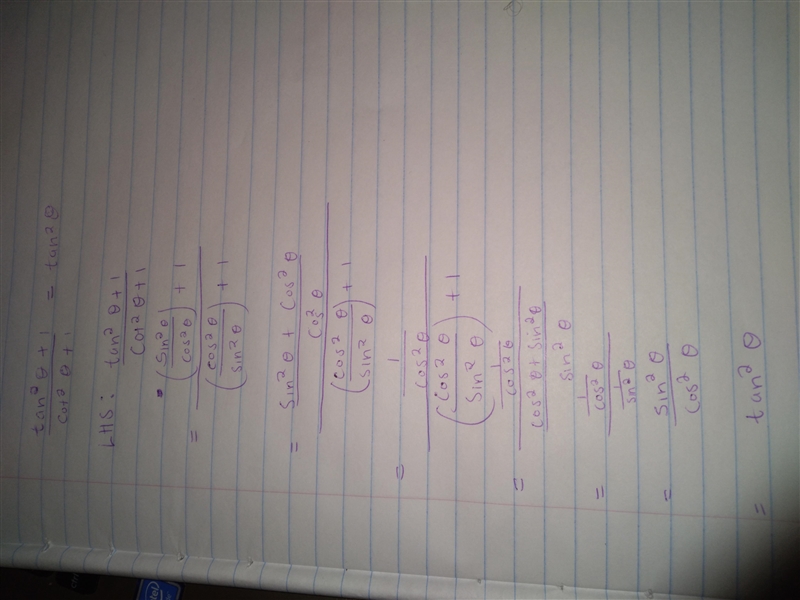 tan²θ + 1 / cot²θ + 1 = tan²θ
LHS: tan²θ + 1 / cot²θ + 1
= (sin²θ / cos²θ) + 1 / (cos²θ / sin²θ) + 1
= sin²θ + cos²θ / cos²θ / (cos²θ / sin²θ) + 1
= 1 / cos²θ / (cos²θ / sin²θ) + 1
= 1 / cos²θ / cos²θ + sin²θ / sin²θ
= 1 / cos²θ / 1 / sin²θ
= sin²θ / cos²θ
= tan²θ
intel